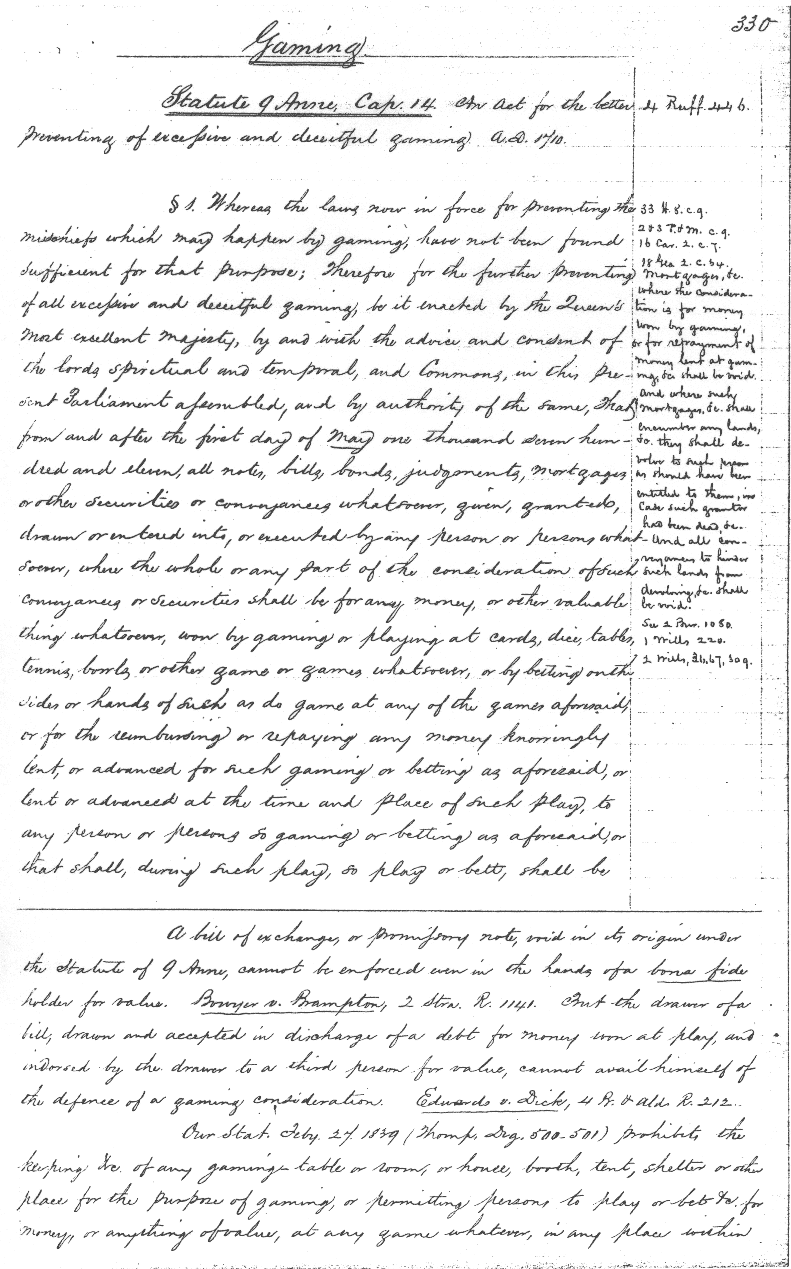 330
Gaming
Statute 9 Anne, Cap. 14. An Act for the better
preventing of excessive and deceitful gaming. A.D. 1710.
4 Ruff. 446.
§ 1. Whereas the laws now in force for preventing the
mischiefs which may happen by gaming, have not been found
sufficient for that purpose; Therefore for the further preventing
of all excessive and deceitful gaming, be it enacted by the Queen's
most excellent majesty, by and with the advice and consent of
the lords spiritual and temporal, and Commons, in this pre-
sent Parliament assembled, and by authority of the same, That
from and after the first day of May one thousand seven hun-
dred and eleven, all notes, bills, bonds, judgments, mortgages
or other securities or conveyances whatsoever, given, granted,
drawn or entered into, or executed by any person or persons what-
soever, where the whole or any part of the consideration of such
conveyances or securities shall be for any money, or other valuable
thing whatsoever, won by gaming or playing at cards, dice, tables,
tennis, bowls or other game or games whatsoever, or by betting on the
sides or hands of such as do game at any of the games aforesaid,
or for the reimbursing or repaying any money knowingly
lent, or advanced for such gaming or betting as aforesaid, or
lent or advanced at the time and place of such play, to
any person or persons so gaming or betting as aforesaid, or
that shall, during such play, so play or bett, shall be
33 H. 8. c. 9.
2 & 3 P. & M. c. 9.
16 Car. 2. c. 7.
18 Geo 2. c. 34.
Mortgages, &c.
where the considera-
tion is for money
won by gaming,
or for repayment of
money lent at gam-
ing, &c. shall be void.
And where such
mortgages, &c. shall
encumber any lands,
&c. they shall de-
volve to such person
as should have been
entitled to them, in
case such grantor
has been dead, &c.
And all con-
veyances to hinder
such lands from
devolving, &c. shall
be void.
See 2 Burr. 1080.
1 Wills 220.
2 Wills, 36. 67, 309.
A bill of exchange, or promissory note, void in its origin under
the Statute of 9 Anne, cannot be enforced even in the hands of a bona fide
holder for value. Bowyer v. Brampton, 2 Stra. R. 1141. But the drawer of a
bill, drawn and accepted in discharge of a debt for money won at play, and
indorsed by the drawer to a third person for value, cannot avail himself of
the defence of a gaming consideration. Edwards v. Dick, 4 B. & Ald. R. 212.
Our Stat. Feby. 27. 1839 (Thomp. Dig. 500-501) prohibits the
keeping &c. of any gaming-table or room, or house, booth, tent, shelter or other
place for the purpose of gaming, or permitting persons to play or bet &c. for
money, or anything of value, at any game whatever, in any place within